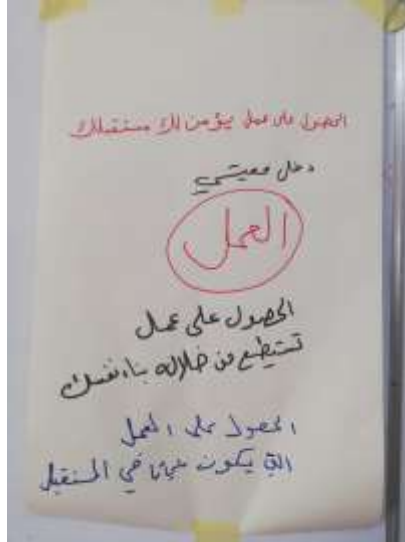 الحصول على عمل يؤمن لك مستقبلك
دخل معيشي
العمل
الحصول على عمل
تستطيع من خلاله بناء نفسك
الحصول على العمل
يكون في المستقبل